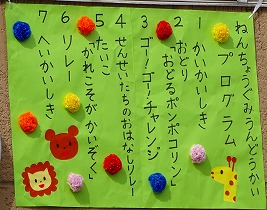 ねんちょうぐみうんどうかい
プログラム
1 かいかいしき
2 おどり
「おどるポンポコリン」
3 ゴー!ゴー!チャレンジ
4 せんせいたちのおはなしリレー
5 たいこ
「われこそがかいぞく」
6 リレー
7 へいかいしき